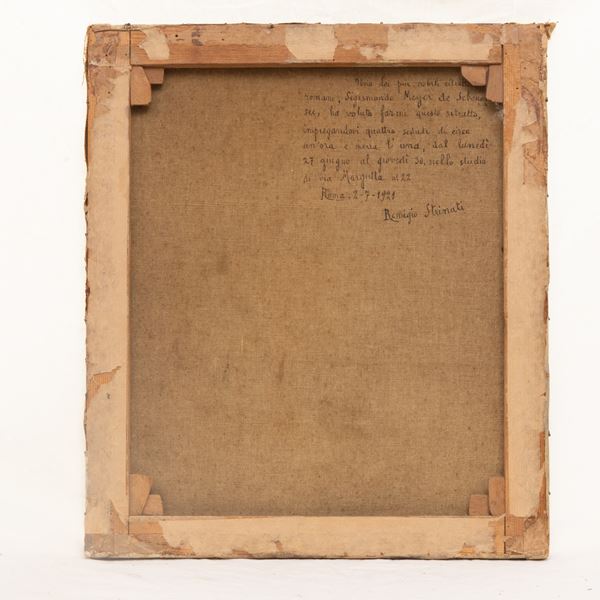 Uno dei più nobili
romano, Sigismondo Meyer de Schau
see, ha voluto farmi questo ritratto,
impiegandovi quattro sedute di circa
un'ora e mezza l'una, dal lunedì
27 giugno al giovedì 30, nello studio
di via Margutta n. 22
Roma. 2-7-1921
Remigio Strinati